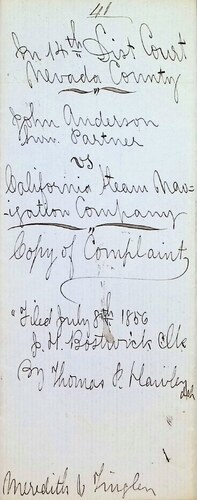 41
In 14th Dist Court
Nevada County
John Anderson
Surv. Partner
vs
California Steam Nav-
igation Company
Copy of Complaint
"Filed July 8th 1866
J. H. Bostwick Clk
By Thomas P. Hawley
Meredith &